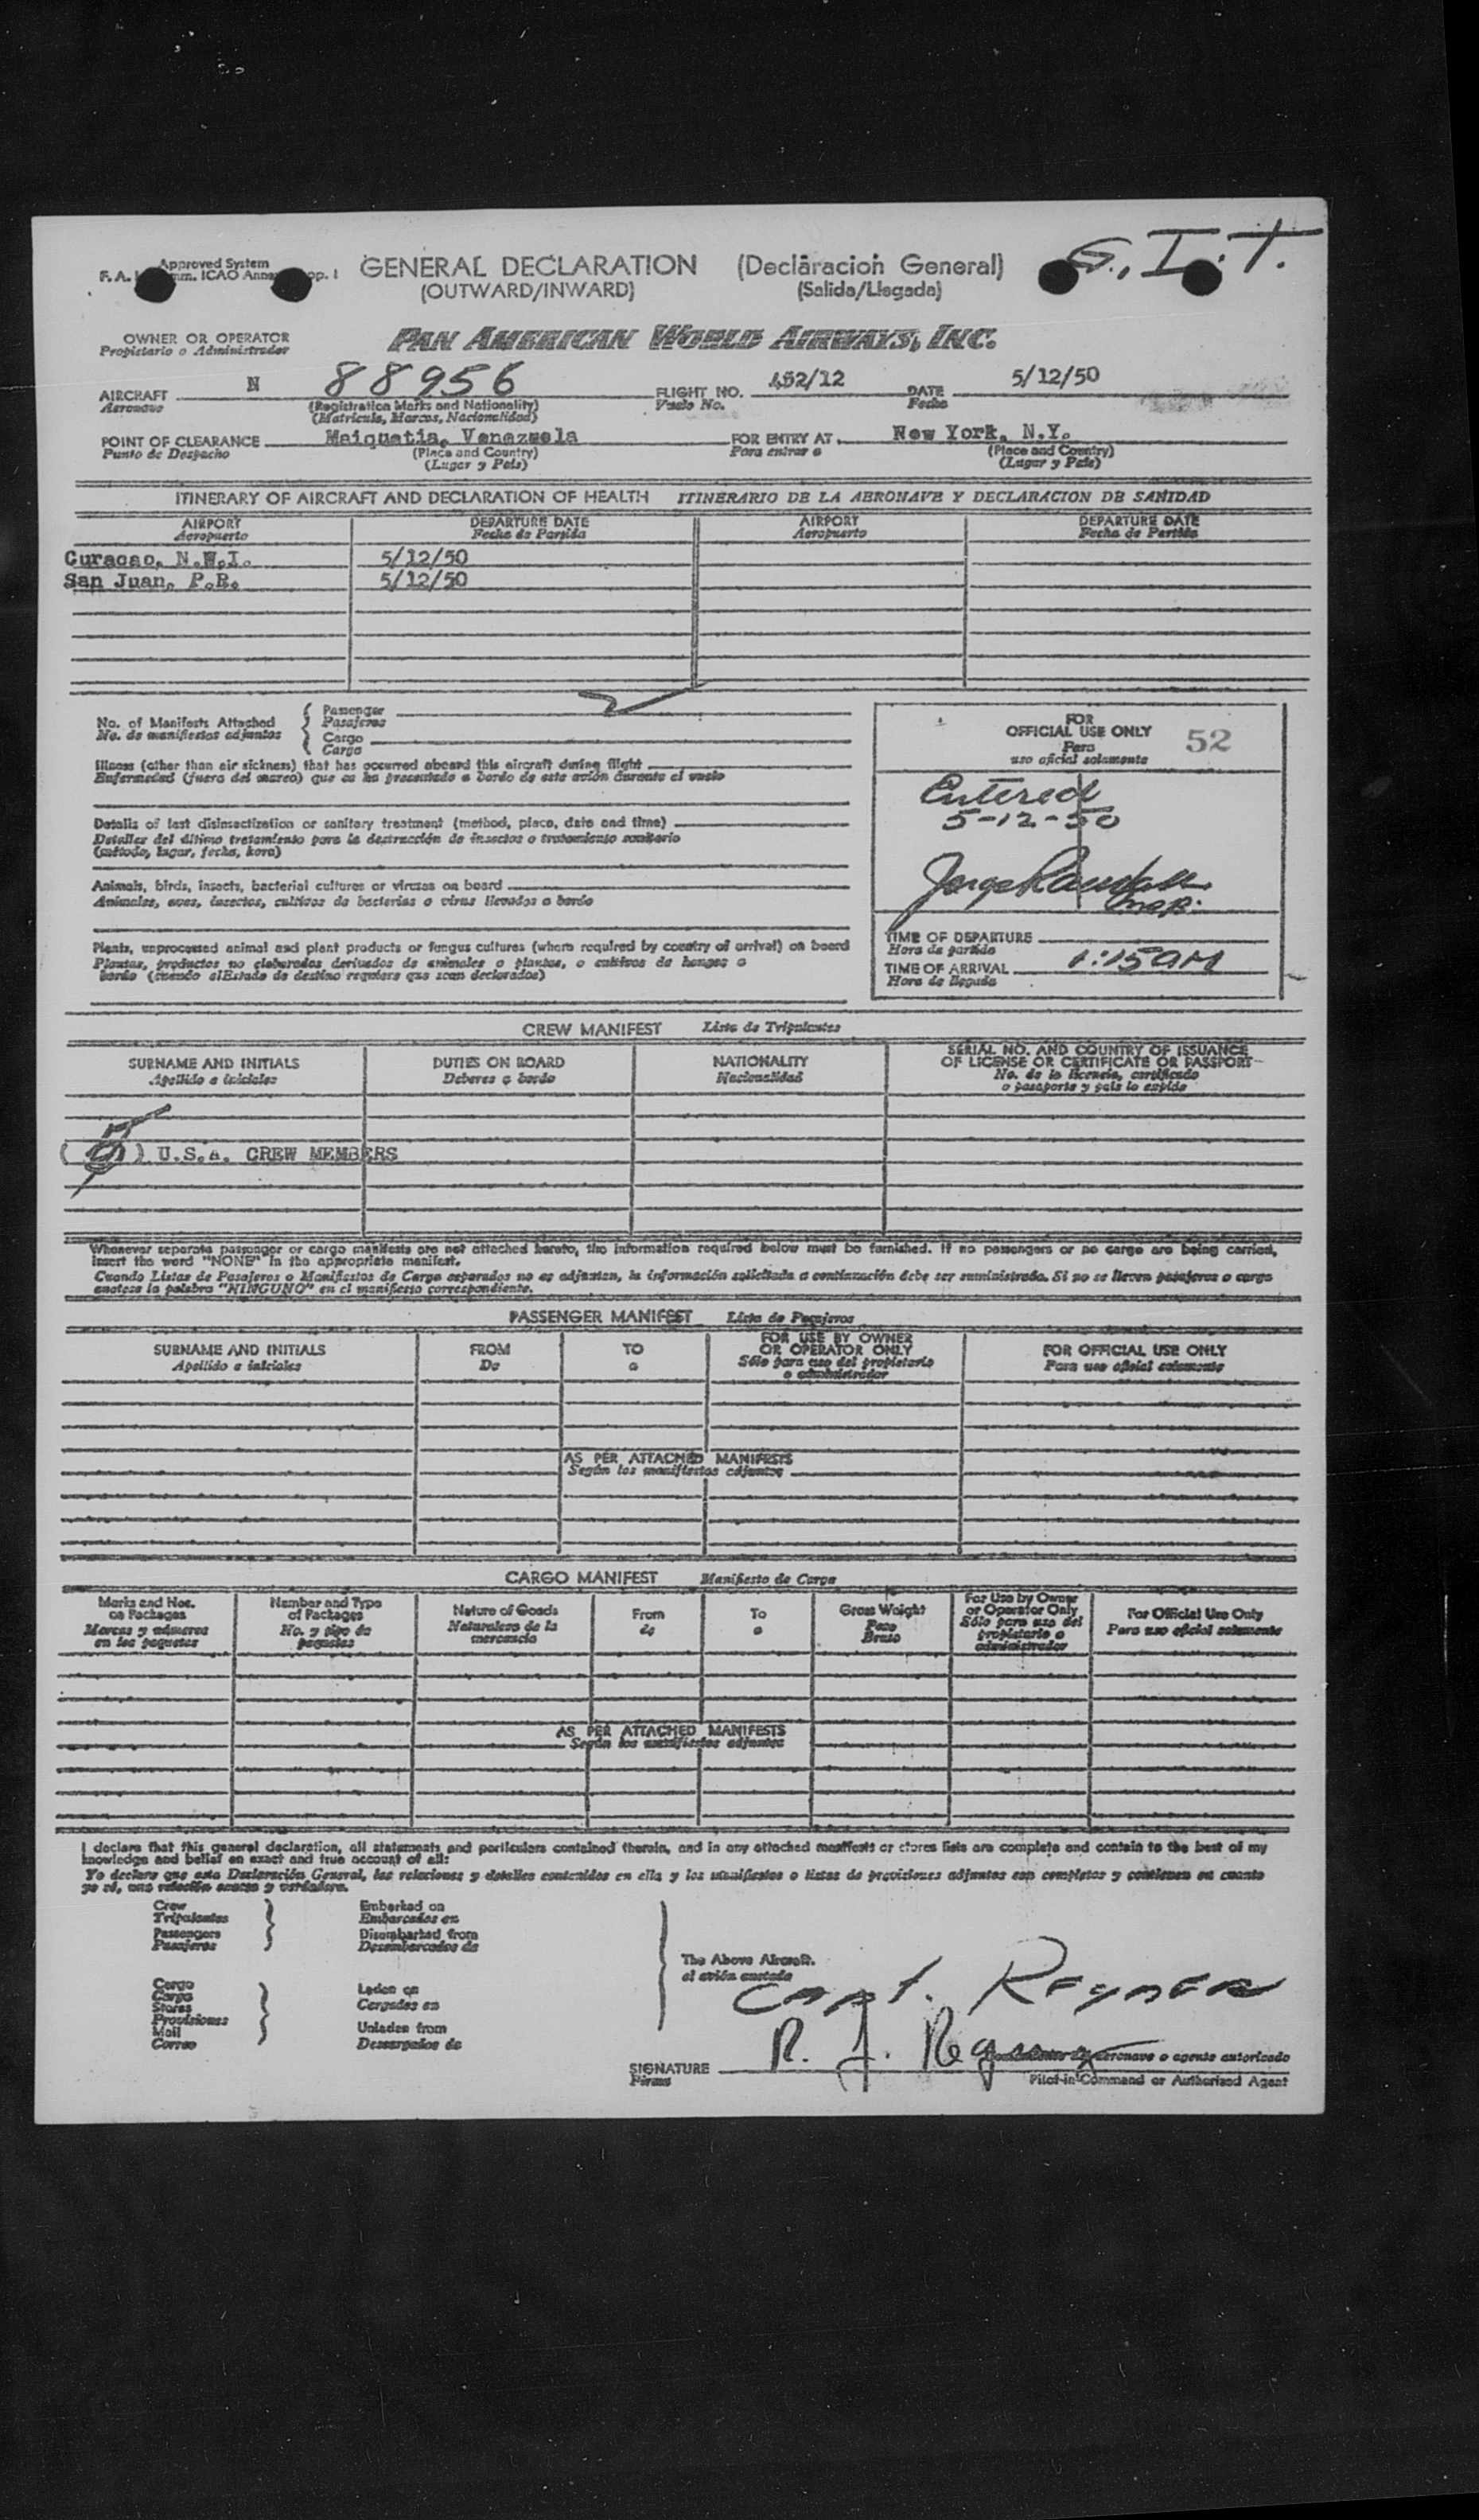 Approved System
GENERAL DECLARATION (Declaracion General)
(OUTWARD/INWARD) (Salida/Llegada)
G.I.T.
OWNER OR OPERATOR PAN AMERICAN WORLD AIRWAYS, INC.
Propietario o Administrador
AIRCRAFT N 88956 FLIGHT NO. 452/12 DATE 5/12/50
Aeronave (Registration Marks and Nationality) Vuelo No. Fecha
(Matricula, Marcas, Nacionalidad)
POINT OF CLEARANCE Maiquetia, Venezuela FOR ENTRY AT New York, N.Y.
Punto de Despacho (Place and Country) Para entrar a (Place and Country)
(Lugar y Pais) (Lugar y Pais)
ITINERARY OF AIRCRAFT AND DECLARATION OF HEALTH ITINERARIO DE LA AERONAVE Y DECLARACION DE SANIDAD
AIRPORT DEPARTURE DATE AIRPORT DEPARTURE DATE
Aeropuerto Fecha de Partida Aeropuerto Fecha de Partida
Curacao, N.W.I. 5/12/50
San Juan, P.R. 5/12/50
No. of Manifests Attached { Passenger
No. de manifiestos adjuntos Pasajeros
Cargo
Cargo
FOR
OFFICIAL USE ONLY 52
Para
uso oficial solamente
Entered
5-12-50
Illness (other than air sickness) that has occurred aboard this aircraft during flight
Enfermedad (fuera del mareo) que se ha presentado a bordo de este avión durante el vuelo
Details of last disinsectization or sanitary treatment (method, place, date and time)
Detalles del último tratamiento para la destrucción de insectos o tratamiento sanitario
(método, lugar, fecha, hora)
Animals, birds, insects, bacterial cultures or viruses on board
Animales, aves, insectos, cultivos de bacterias o virus llevados a bordo
Plants, unprocessed animal and plant products or fungus cultures (where required by country of arrival) on board
Plantas, productos no elaborados derivados de animales o plantas, o cultivos de hongos a
bordo (cuando el Estado de destino requiera que sean declarados)
TIME OF DEPARTURE
Hora de partida
TIME OF ARRIVAL 1:15 AM
Hora de llegada
CREW MANIFEST Lista de Tripulantes
SURNAME AND INITIALS DUTIES ON BOARD NATIONALITY SERIAL NO. AND COUNTRY OF ISSUANCE
OF LICENSE OR CERTIFICATE OR PASSPORT
Apellido e iniciales Deberes a bordo Nacionalidad No. de la licencia, certificado
o pasaporte y pais lo expide
5
( ) U.S.A. CREW MEMBERS
Whenever separate passenger or cargo manifests are not attached hereto, the information required below must be furnished. If no passengers or no cargo are being carried,
insert the word "NONE" in the appropriate manifest.
Cuando Listas de Pasajeros o Manifiestos de Carga separados no se adjuntan, la información solicitada a continuación debe ser suministrada. Si no se lleven pasajeros o carga
anotese la palabra "NINGUNO" en el manifiesto correspondiente.
PASSENGER MANIFEST Lista de Pasajeros
SURNAME AND INITIALS FROM TO FOR USE BY OWNER FOR OFFICIAL USE ONLY
OR OPERATOR ONLY
Apellido e iniciales De a Sólo para uso del propietario Para uso oficial solamente
o administrador
AS PER ATTACHED MANIFESTS
Según los manifiestos adjuntos
CARGO MANIFEST Manifiesto de Carga
Marks and Nos. Number and Type Nature of Goods From To Gross Weight For Use by Owner For Official Use Only
on Packages of Packages or Operator Only
Marcas y números No. y tipo de Naturaleza de la de a Peso Sólo para uso del Para uso oficial solamente
en los paquetes paquetes mercancia Bruto propietario o
administrador
AS PER ATTACHED MANIFESTS
Según los manifiestos adjuntos
I declare that this general declaration, all statements and particulars contained therein, and in any attached manifests or stores lists are complete and contain to the best of my
knowledge and belief an exact and true account of all:
Yo declaro que esta Declaración General, las relaciones y detalles contenidos en ella y los manifiestos o listas de provisiones adjuntos son completos y contienen en cuanto
yo sé, una relación exacta y verdadera.
Crew Embarked on
Tripulantes Embarcados en
Passengers Disembarked from
Pasajeros Desembarcados de
The Above Aircraft.
el avión anotado
Cargo Laden on
Carga Cargados en
Stores
Provisiones
Mail Unladen from
Correo Descargados de
Capt. Regner
SIGNATURE R. J. Regner aeronave o agente autorizado
Firma Pilot-in-Command or Authorized Agent